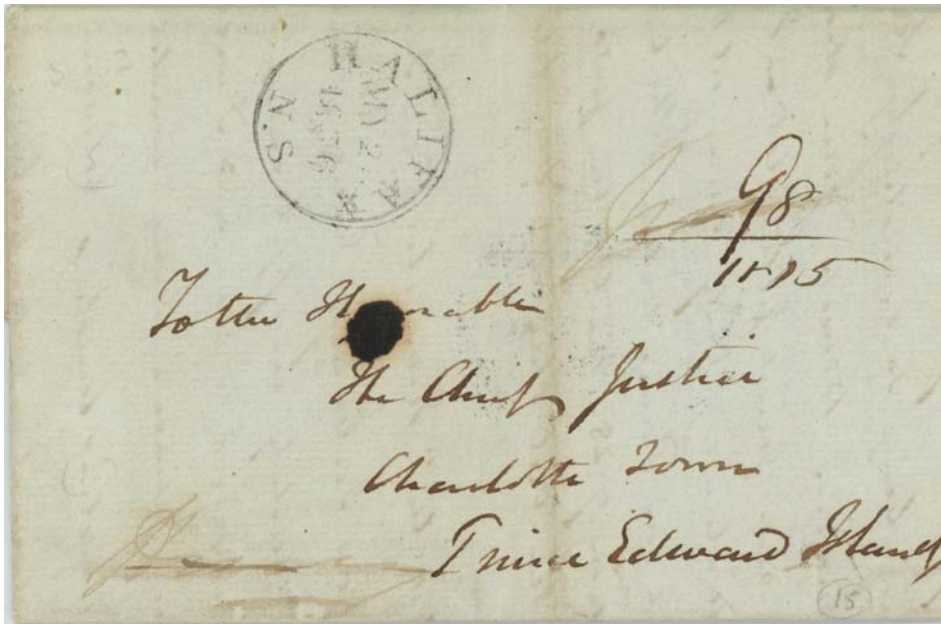 HALIFAX N.S
MY 2
98
To the Honorable
The Chief Justice
Charlotte Town
Prince Edward Island
15